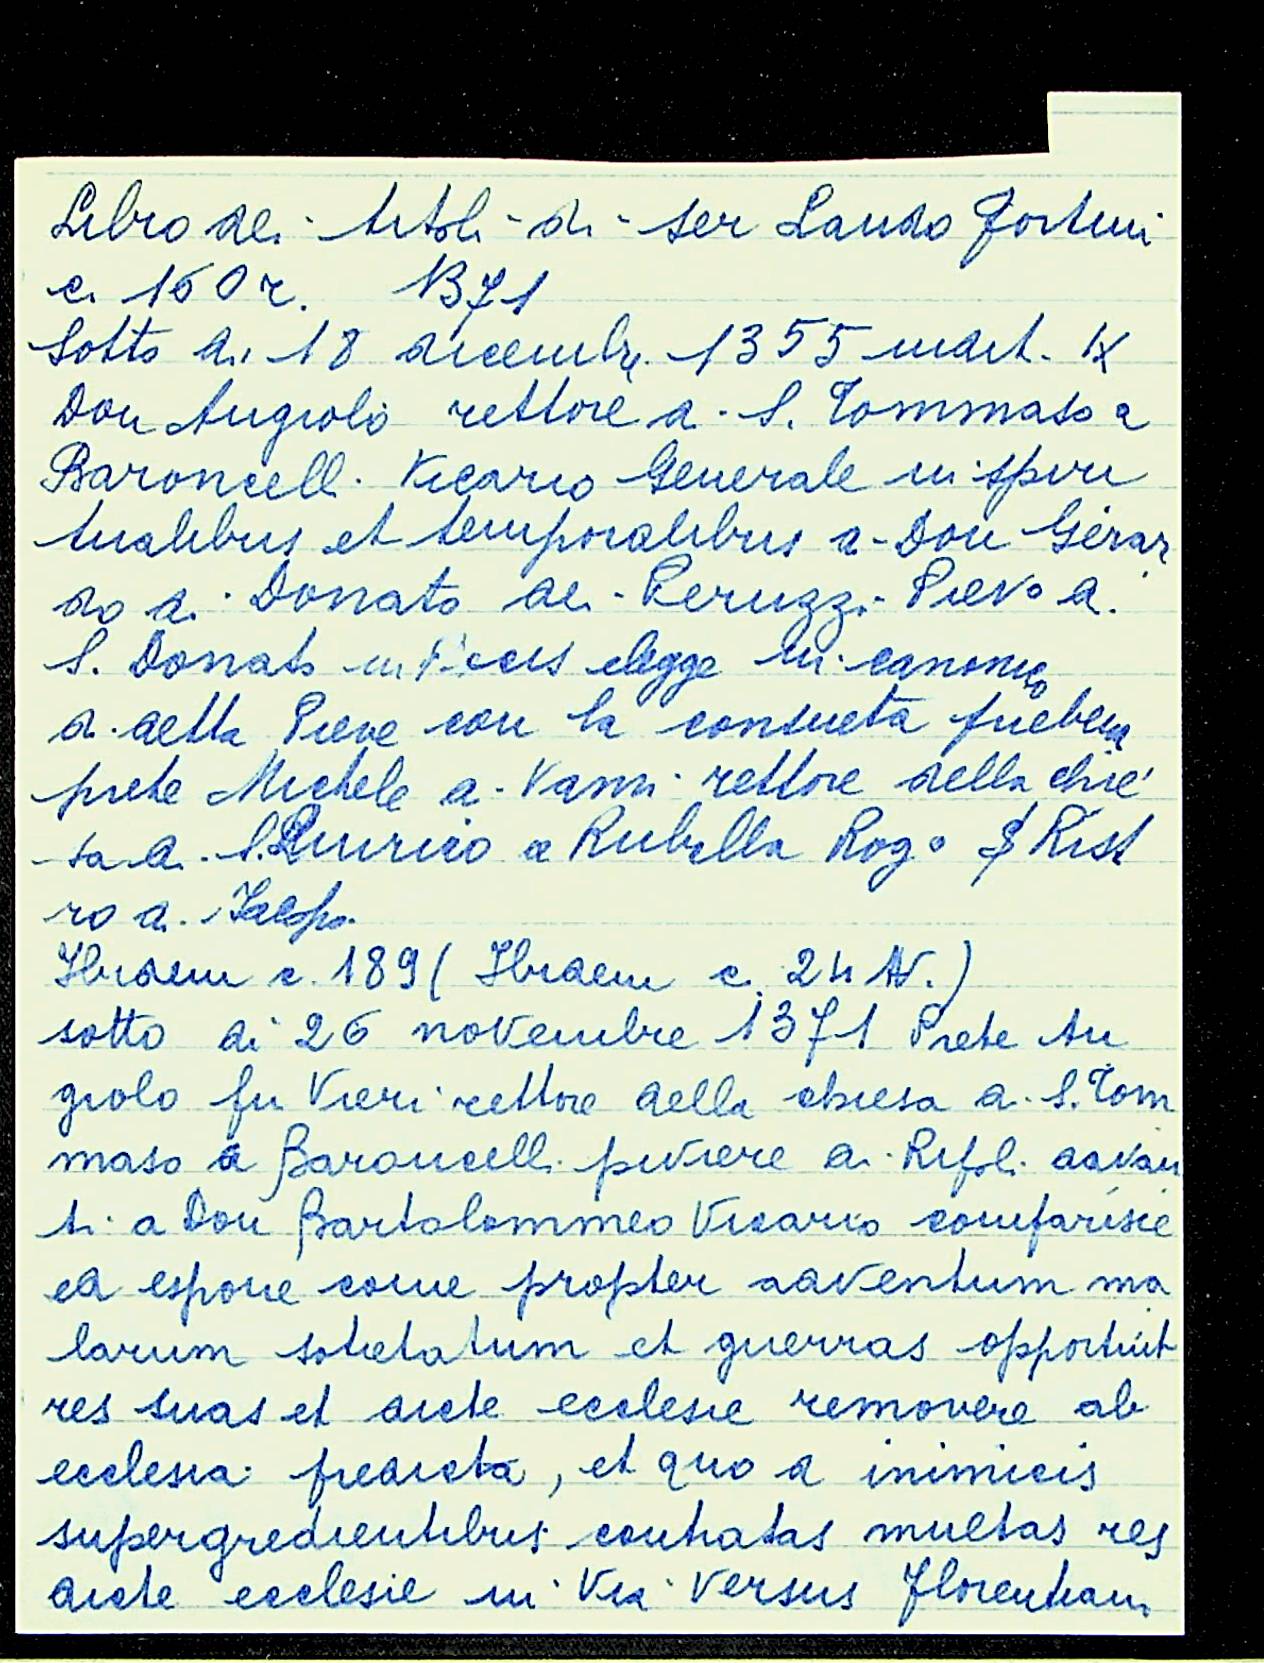 Libro dei titoli di ser Lando Fortini
c. 160 r. 1371
Sotto di 18 dicembr. 1355 indit. IX
Don Angiolo rettore di S. Tommaso a
Baroncelli Vicario Generale in spiri
tualibus et temporalibus di Don Gerar
do di Donato dei Peruzzi Pievo di
S. Donato in Poces elegge in canonico
di detta Pieve con la consueta prebenda
prete Michele di Vanni rettore della chie
sa di S. Quirico a Rubella Rog° Rist
ro di Iacopo
Ibidem c. 189 (Ibidem c. 24 N.)
sotto di 26 novembre 1371 Prete An
giolo fu Vieri rettore della chiesa di S. Tom
maso a Baroncelli piviere di Ripoli davan
ti a Don Bartolommeo Vicario comparisce
ed espone come propter adventum ma
larum sotietatum et guerras opportuit
res suas et dicte ecclesie removere ab
ecclesia predicta, et quod inimicis
supergredientibus contratas multas res
dicte ecclesie in via versus Florentiam